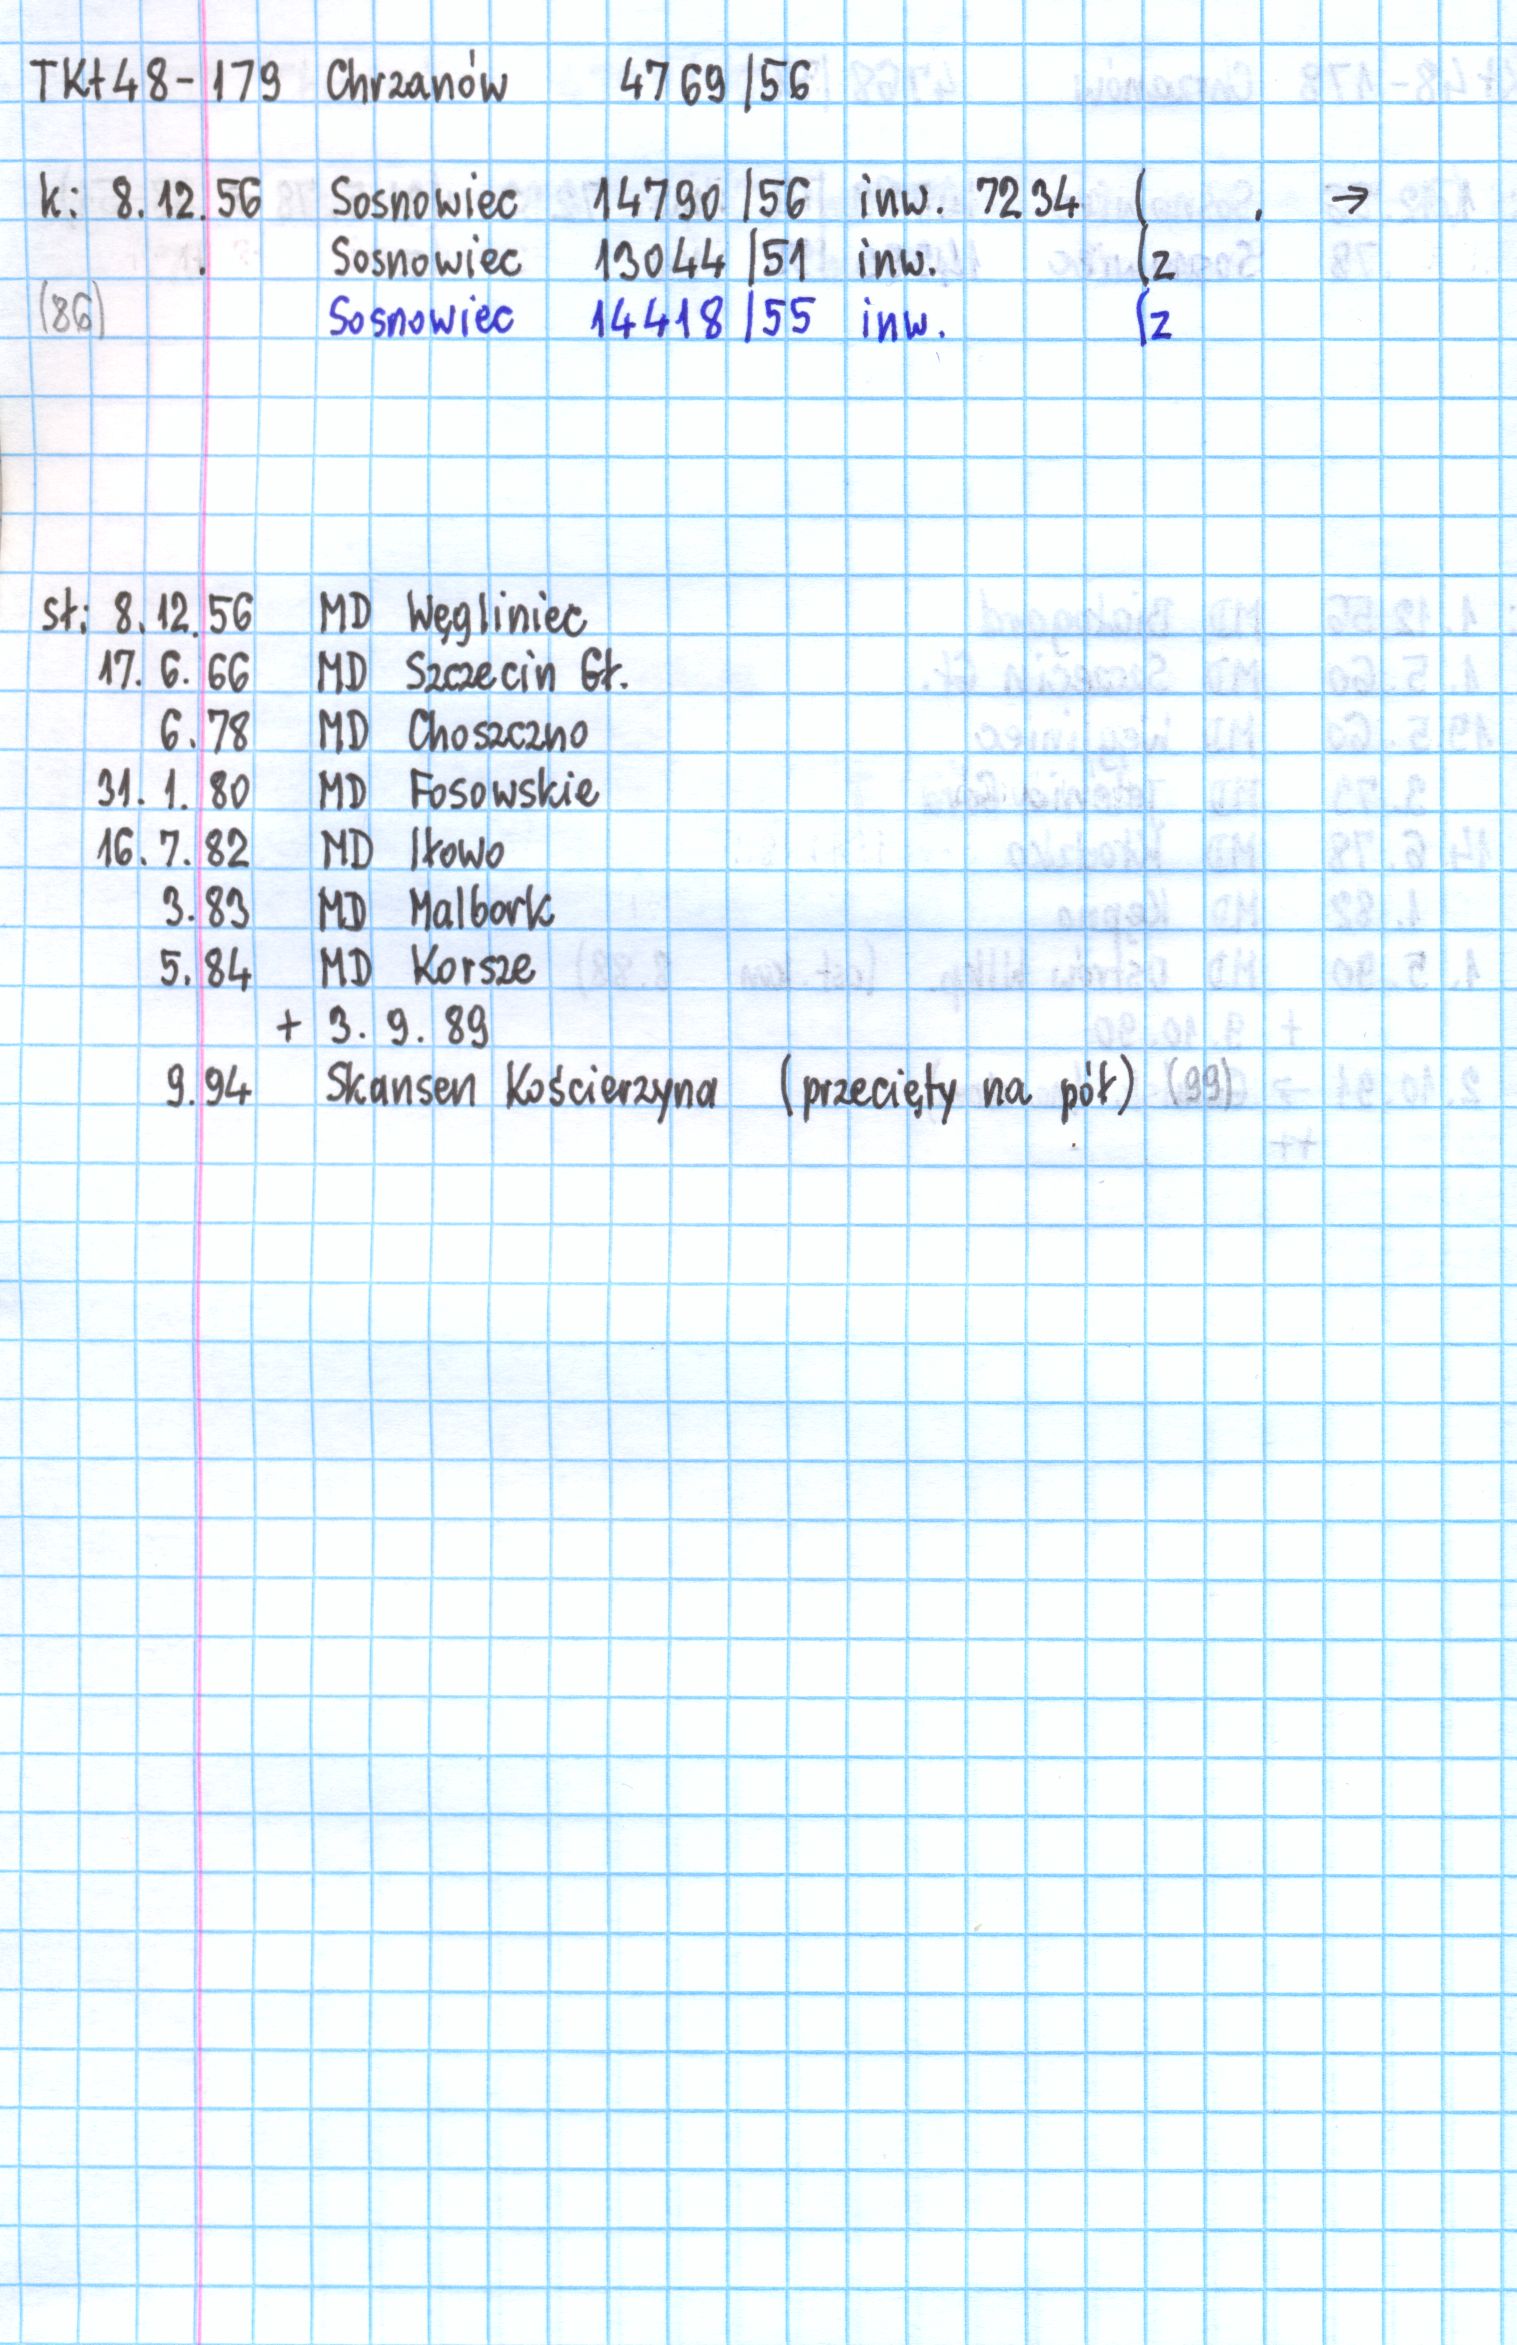 TKt48-179 Chrzanów 4769/56
k: 8.12.56 Sosnowiec 14790/56 inw. 7234 ( . →
. Sosnowiec 13044/51 inw. (z
(86) Sosnowiec 14418/55 inw. (z
st: 8.12.56 MD Węgliniec
17.6.66 MD Szczecin Gł.
6.78 MD Choszczno
31.1.80 MD Fosowskie
16.7.82 MD Iłowo
3.83 MD Malbork
5.84 MD Korsze
+ 3.9.89
9.94 Skansen Kościerzyna (przecięty na pół) (99)